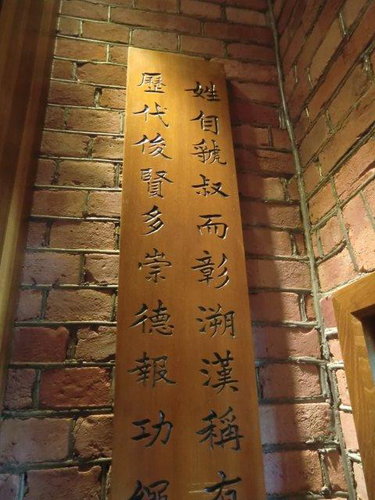 姓自虢叔而彰溯漢稱有
歷代後賢多崇德報功